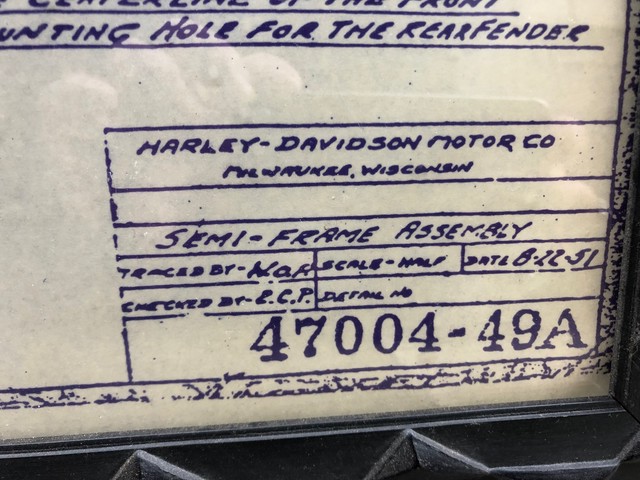 CENTERLINE OF THE FRONT
UNTING HOLE FOR THE REARFENDER
HARLEY-DAVIDSON MOTOR CO
MILWAUKEE, WISCONSIN
SEMI-FRAME ASSEMBLY
TRACED BY- SCALE-HALF DATE 8-22-51
CHECKED BY- E.C.P. DETAIL NO
47004-49A